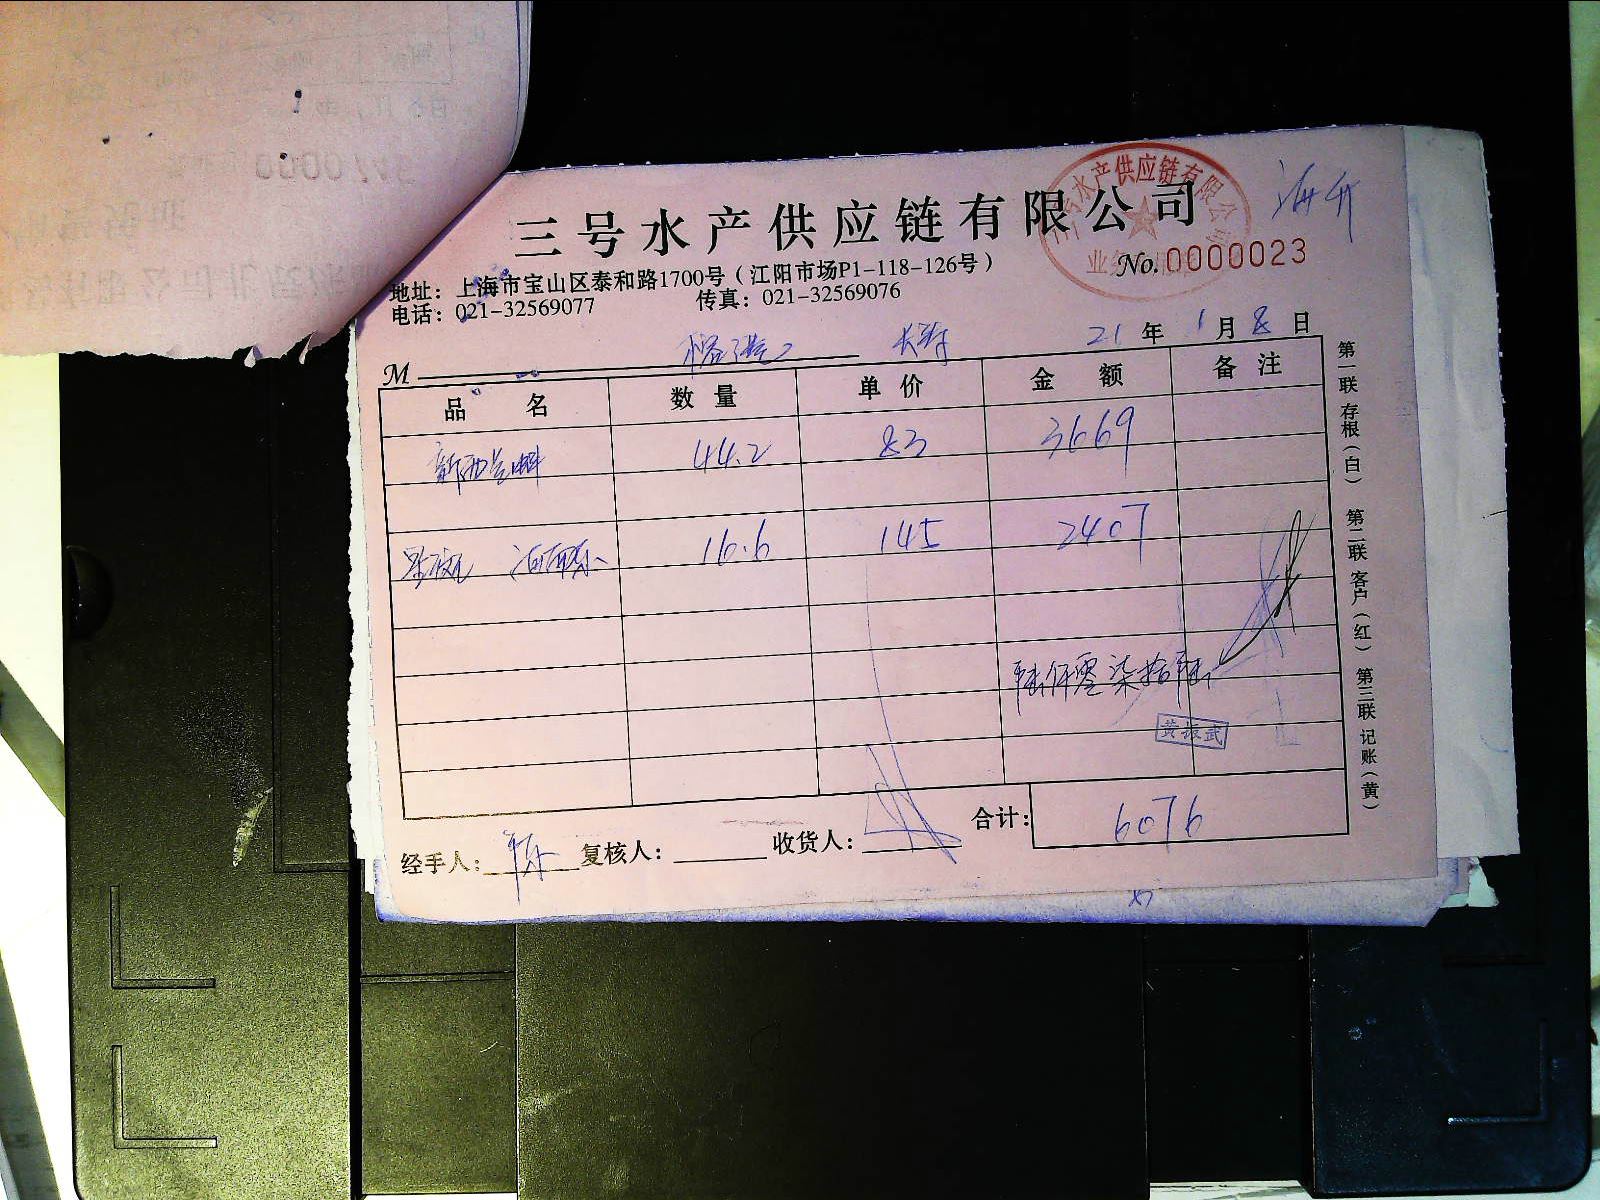 三号水产供应链有限公司
三号水产供应链有限公司
No.0000023
地址：上海市宝山区泰和路1700号（江阳市场P1-118-126号）
电话：021-32569077 传真：021-32569076
21年1月8日
M
品名 数量 单价 金额 备注
新西兰 44.2 83 3669
16.6 145 2407
陆仟零柒拾陆
合计：6076
经手人： 复核人： 收货人：
第一联 存根（白） 第二联 客户（红） 第三联 记账（黄）